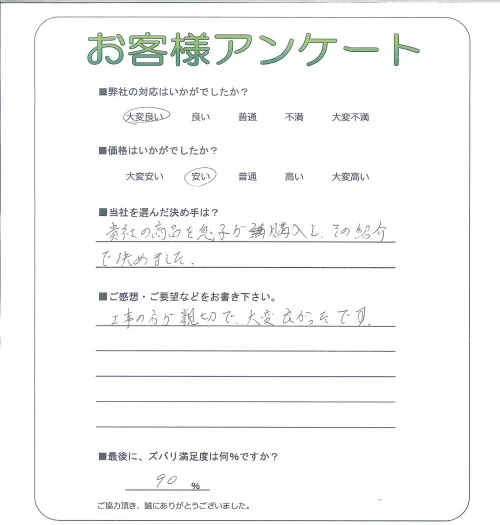 お客様アンケート
■弊社の対応はいかがでしたか？
大変良い 良い 普通 不満 大変不満
■価格はいかがでしたか？
大変安い 安い 普通 高い 大変高い
■当社を選んだ決め手は？
貴社の商品を息子が購入し、その紹介
で決めました。
■ご感想・ご要望などをお書き下さい。
工事の方が親切で、大変良かったです。
■最後に、ズバリ満足度は何%ですか？
90 %
ご協力頂き、誠にありがとうございました。